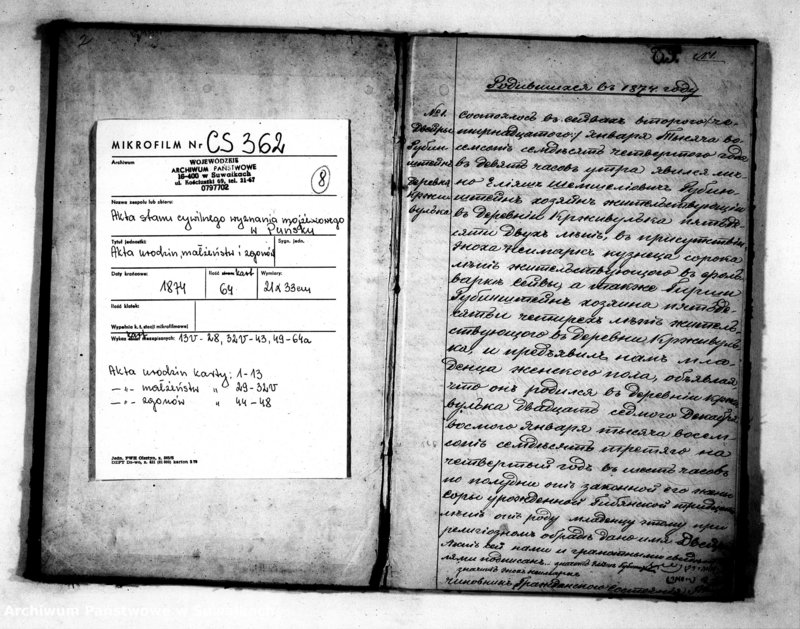 2
MIKROFILM Nr CS 362
Archiwum
WOJEWÓDZKIE
ARCHIWUM PAŃSTWOWE
16-400 w Suwałkach
ul. Kościuszki 69, tel. 21-67
0797702
8
Nazwa zespołu lub zbioru:
Akta stanu cywilnego wyznania mojżeszowego
w Puńsku
Tytuł jednostki:
Sygn. jedn.
Akta urodzin, małżeństw i zgonów
Daty krańcowe:
Ilość kart
Wymiary:
1874
64
21x33cm
Ilość klatek:
Wypełnia k. t. stacji mikrofilmowej
Wykaz kart niezapisanych: 13v-28, 32v-43, 49-64a
Akta urodzin karty: 1-13
-"- małżeństw " 29-32v
-"- zgonów " 44-48
Родившихся въ 1874 году
№1.
Двейри
Рубин
штейнъ
деревня
Кржи
вулька
состоялось въ сейнахъ второго/че-
тырнадцатого/ Января Тысяча во-
семсотъ семдесятъ четвертого года
въ девять часовъ утра явился лич-
но Еліяшъ Рубин-
штейнъ хозяинъ жительствующій
въ деревни Крживулька пятьде-
сяти двухъ лѣтъ, въ присутствіи
кузнеца сорока
лѣтъ жительствующаго въ фоль-
варкѣ а также Гирши
Рубинштейна хозяина пятьде-
сяти четырехъ лѣтъ житель-
ствующаго въ деревни Крживуль-
ка, и предъявилъ намъ мла-
денца женского пола, объявляя
что онъ родился въ деревни Крж-
вулька двадцать седмого Декабря
восмого Января тысяча восем-
сотъ семдесятъ третяго на
четвертый годъ въ шесть часовъ
по полудни отъ законной его жены
Соры урожденной
лѣтъ отъ роду младенцу этому при
религіозномъ обрядѣ дано имя
Актъ сей нами и грамотными
подписанъ.
чиновникъ Гражданского состоянія
Archiwum Państwowe w Suwałkach